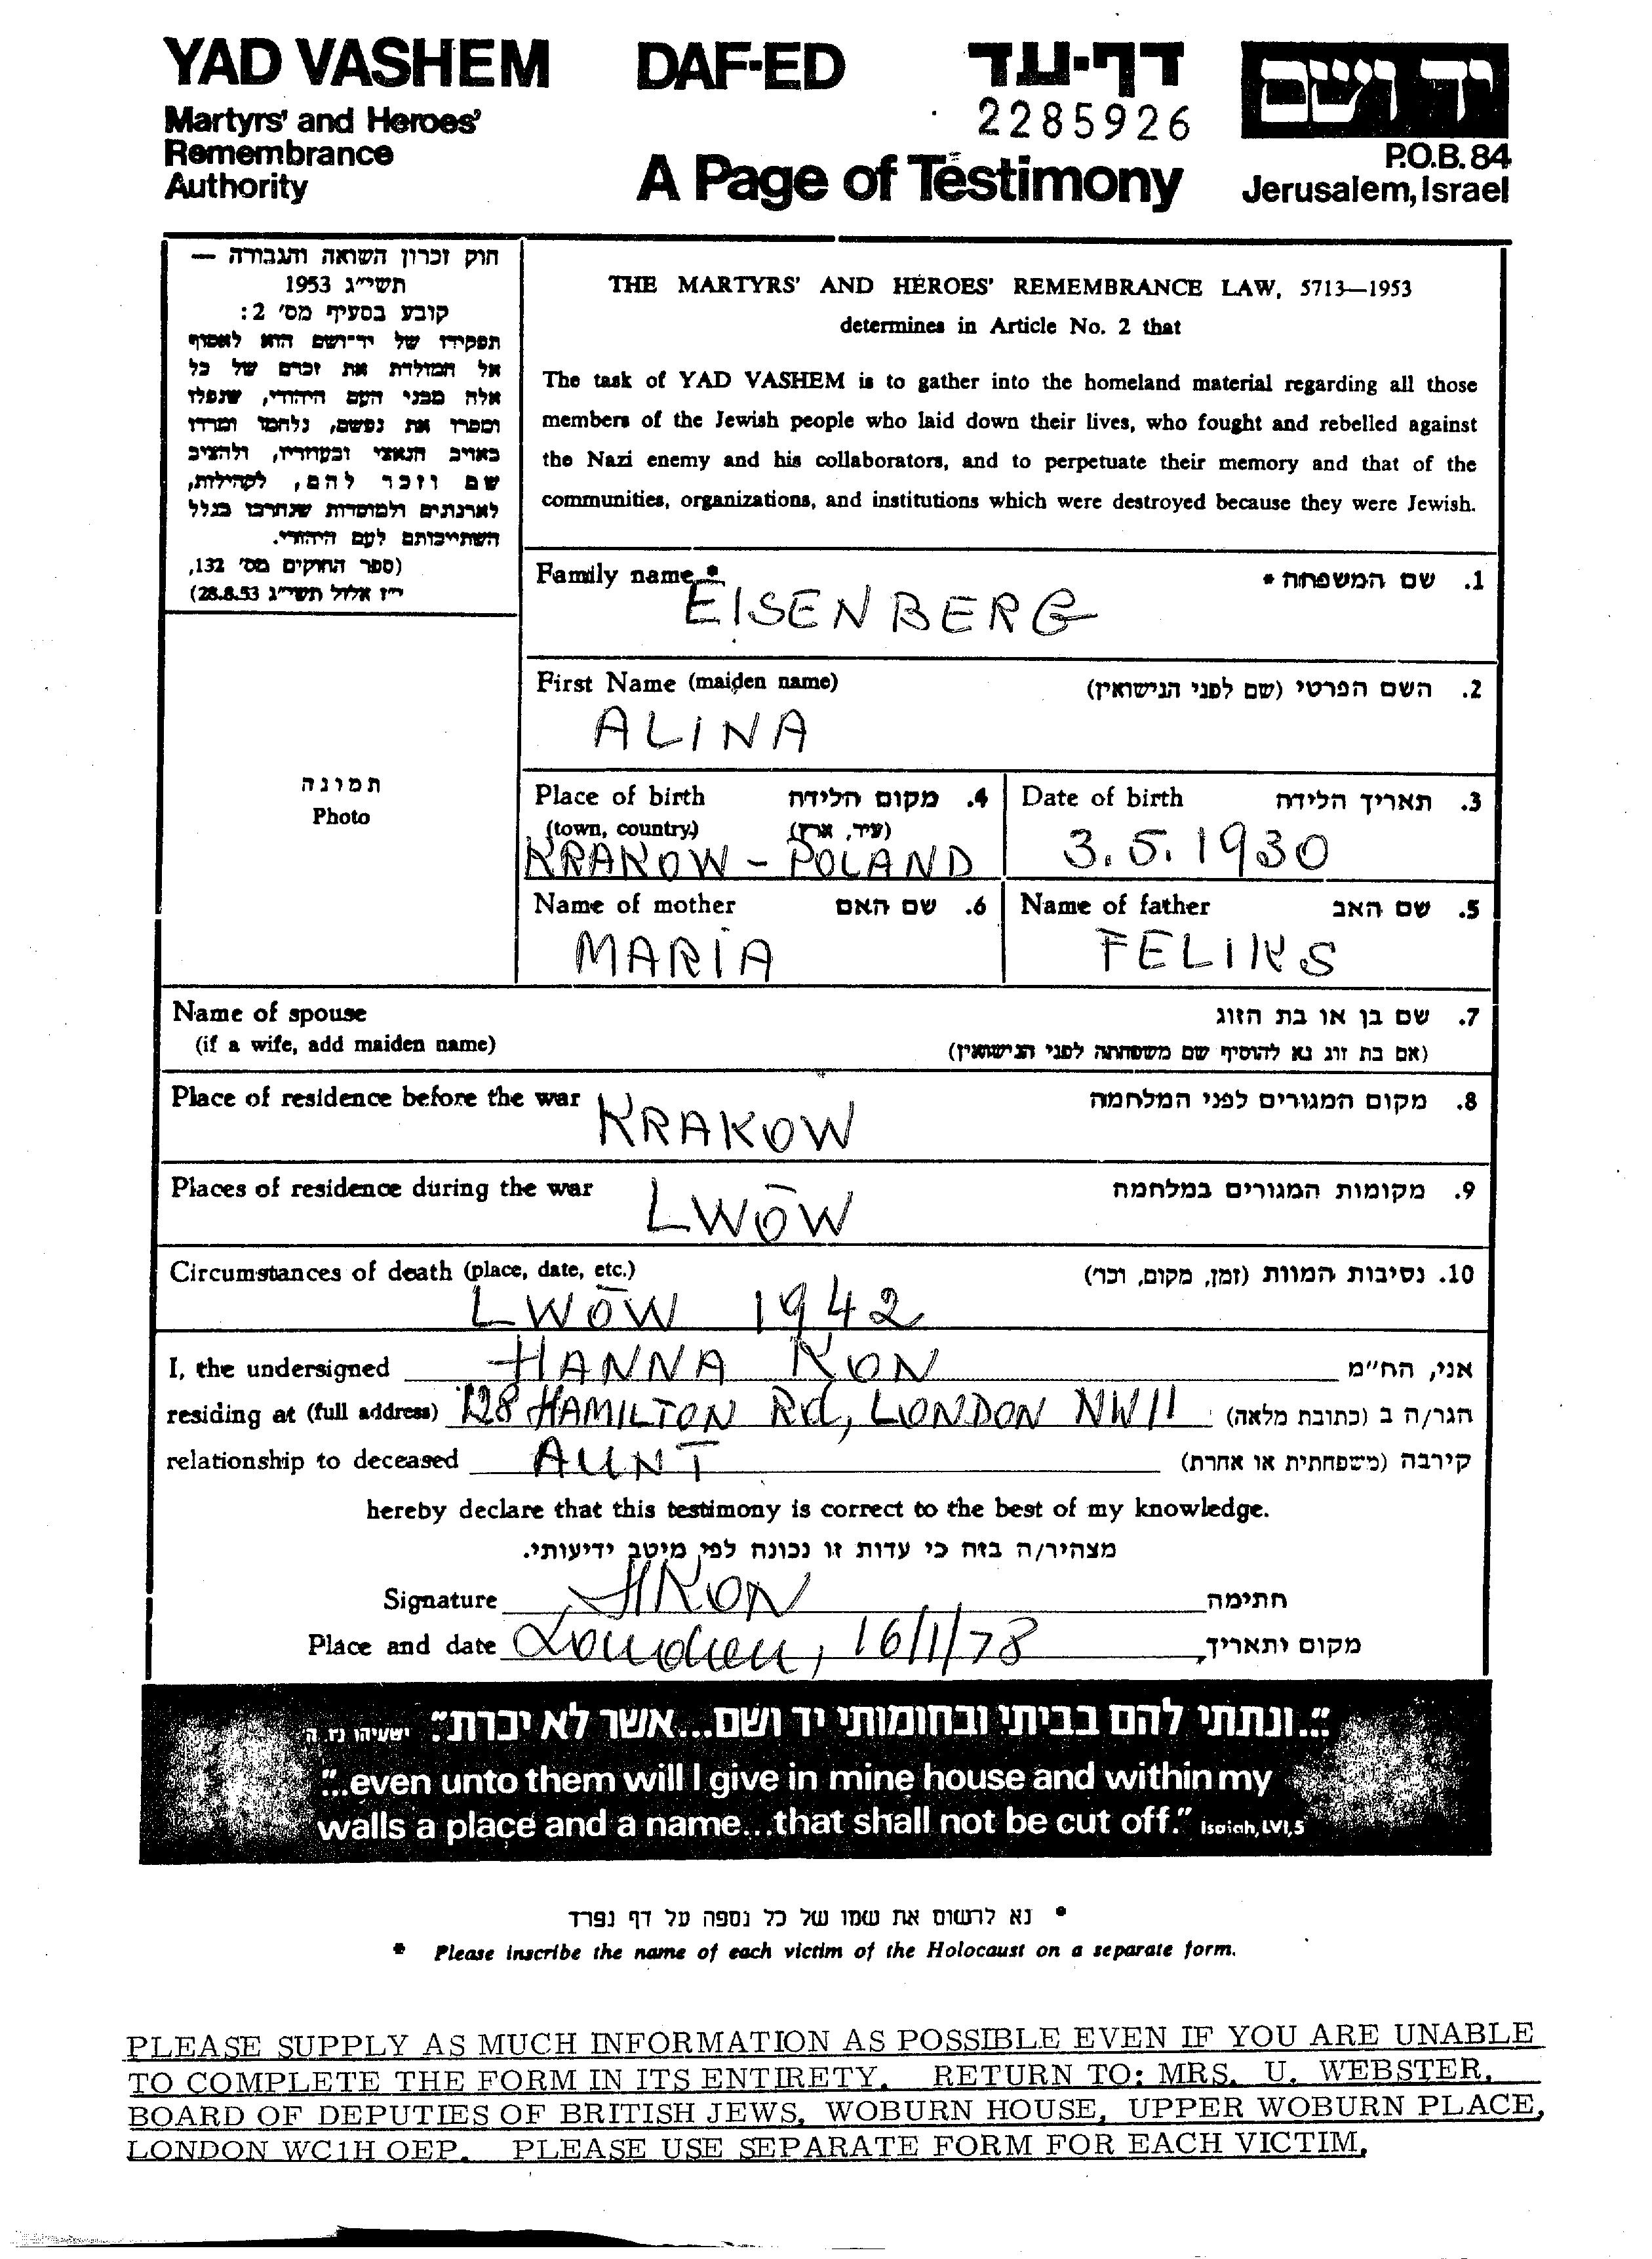 YAD VASHEM
Martyrs' and Heroes'
Remembrance
Authority
DAF-ED
דף-עד
2285926
A Page of Testimony
יד ושם
P.O.B. 84
Jerusalem, Israel
חוק זכרון השואה והגבורה —
תשי"ג 1953
קובע בסעיף מס' 2:
תפקידו של יד-ושם הוא לאסוף
אל המולדת את זכרם של כל
אלה מבני העם היהודי, שנפלו
ומסרו את נפשם, נלחמו ומרדו
באויב הנאצי ובעוזריו, ולהציב
שם וזכר להם, לקהילות,
לארגונים ולמוסדות שנחרבו בגלל
השתייכותם לעם היהודי.
(ספר החוקים מס' 132,
י"ז אלול תשי"ג 28.8.53)
THE MARTYRS' AND HEROES' REMEMBRANCE LAW, 5713—1953
determines in Article No. 2 that
The task of YAD VASHEM is to gather into the homeland material regarding all those
members of the Jewish people who laid down their lives, who fought and rebelled against
the Nazi enemy and his collaborators, and to perpetuate their memory and that of the
communities, organizations, and institutions which were destroyed because they were Jewish.
תמונה
Photo
Family name * 1. שם המשפחה *
EISENBERG
First Name (maiden name) 2. השם הפרטי (שם לפני הנישואין)
ALINA
Place of birth 4. מקום הלידה
(town, country) (עיר, ארץ)
KRAKOW - POLAND
Date of birth 3. תאריך הלידה
3.5.1930
Name of mother 6. שם האם
MARIA
Name of father 5. שם האב
FELIKS
Name of spouse 7. שם בן או בת הזוג
(if a wife, add maiden name) (אם בת זוג נא להוסיף שם משפחתה לפני הנישואין)
Place of residence before the war 8. מקום המגורים לפני המלחמה
KRAKOW
Places of residence during the war 9. מקומות המגורים במלחמה
LWÓW
Circumstances of death (place, date, etc.) 10. נסיבות המוות (זמן, מקום, וכו')
LWÓW 1942
I, the undersigned HANNA KON אני, הח"מ
residing at (full address) 128 HAMILTON Rd, LONDON NW11 הגר/ה ב (כתובת מלאה)
relationship to deceased AUNT קירבה (משפחתית או אחרת)
hereby declare that this testimony is correct to the best of my knowledge.
מצהיר/ה בזה כי עדות זו נכונה לפי מיטב ידיעותי.
Signature HKON חתימה
Place and date London, 16/1/78 מקום ותאריך
"..ונתתי להם בביתי ובחומותי יד ושם...אשר לא יכרת". ישעיהו נו, ה
"...even unto them will I give in mine house and within my
walls a place and a name...that shall not be cut off." Isaiah, LVI, 5
* נא לרשום את שמו של כל נספה על דף נפרד
* Please inscribe the name of each victim of the Holocaust on a separate form.
PLEASE SUPPLY AS MUCH INFORMATION AS POSSIBLE EVEN IF YOU ARE UNABLE
TO COMPLETE THE FORM IN ITS ENTIRETY. RETURN TO: MRS. U. WEBSTER,
BOARD OF DEPUTIES OF BRITISH JEWS, WOBURN HOUSE, UPPER WOBURN PLACE,
LONDON WC1H OEP. PLEASE USE SEPARATE FORM FOR EACH VICTIM.